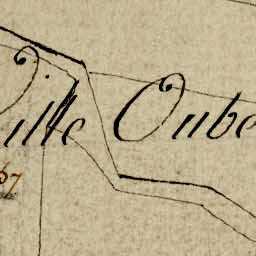 Ville Oube
67